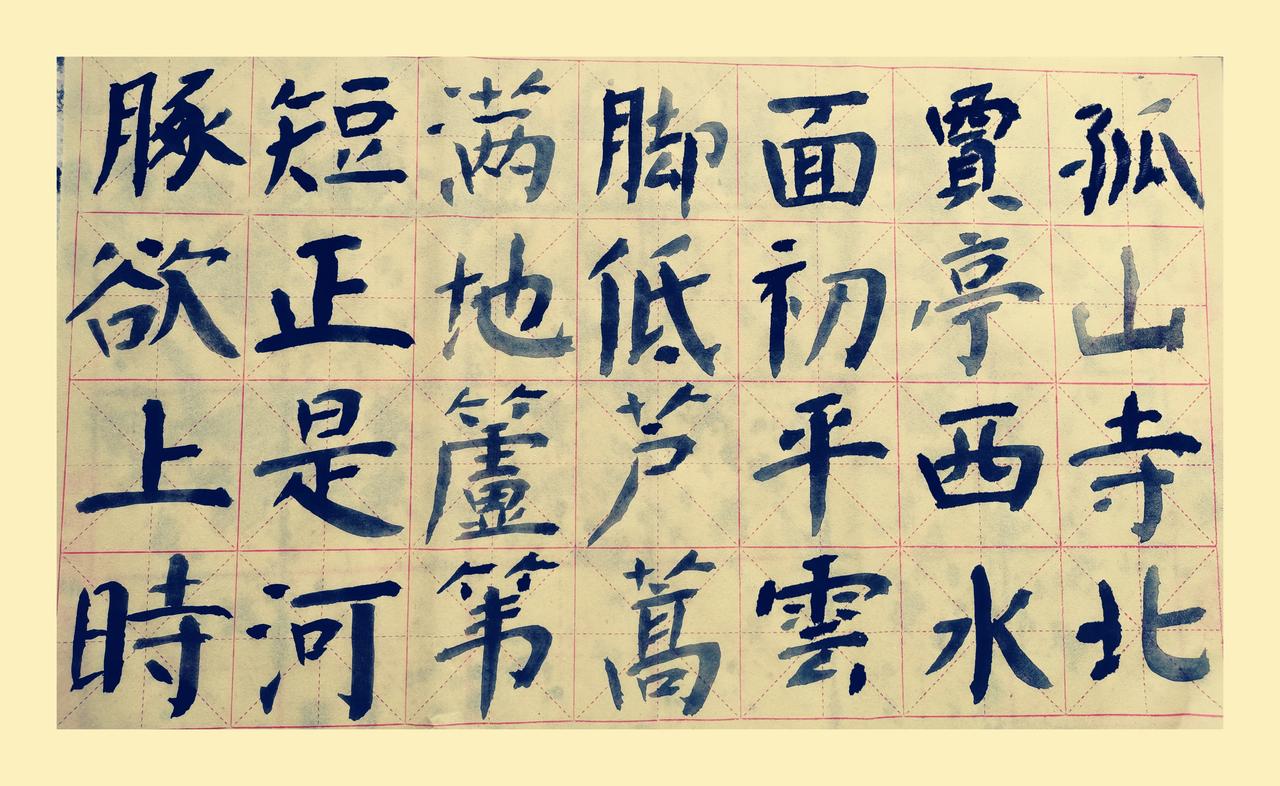 孤山寺北
賈亭西水
面初平雲
脚低芦蒿
满地籚
短正是河
豚欲上時